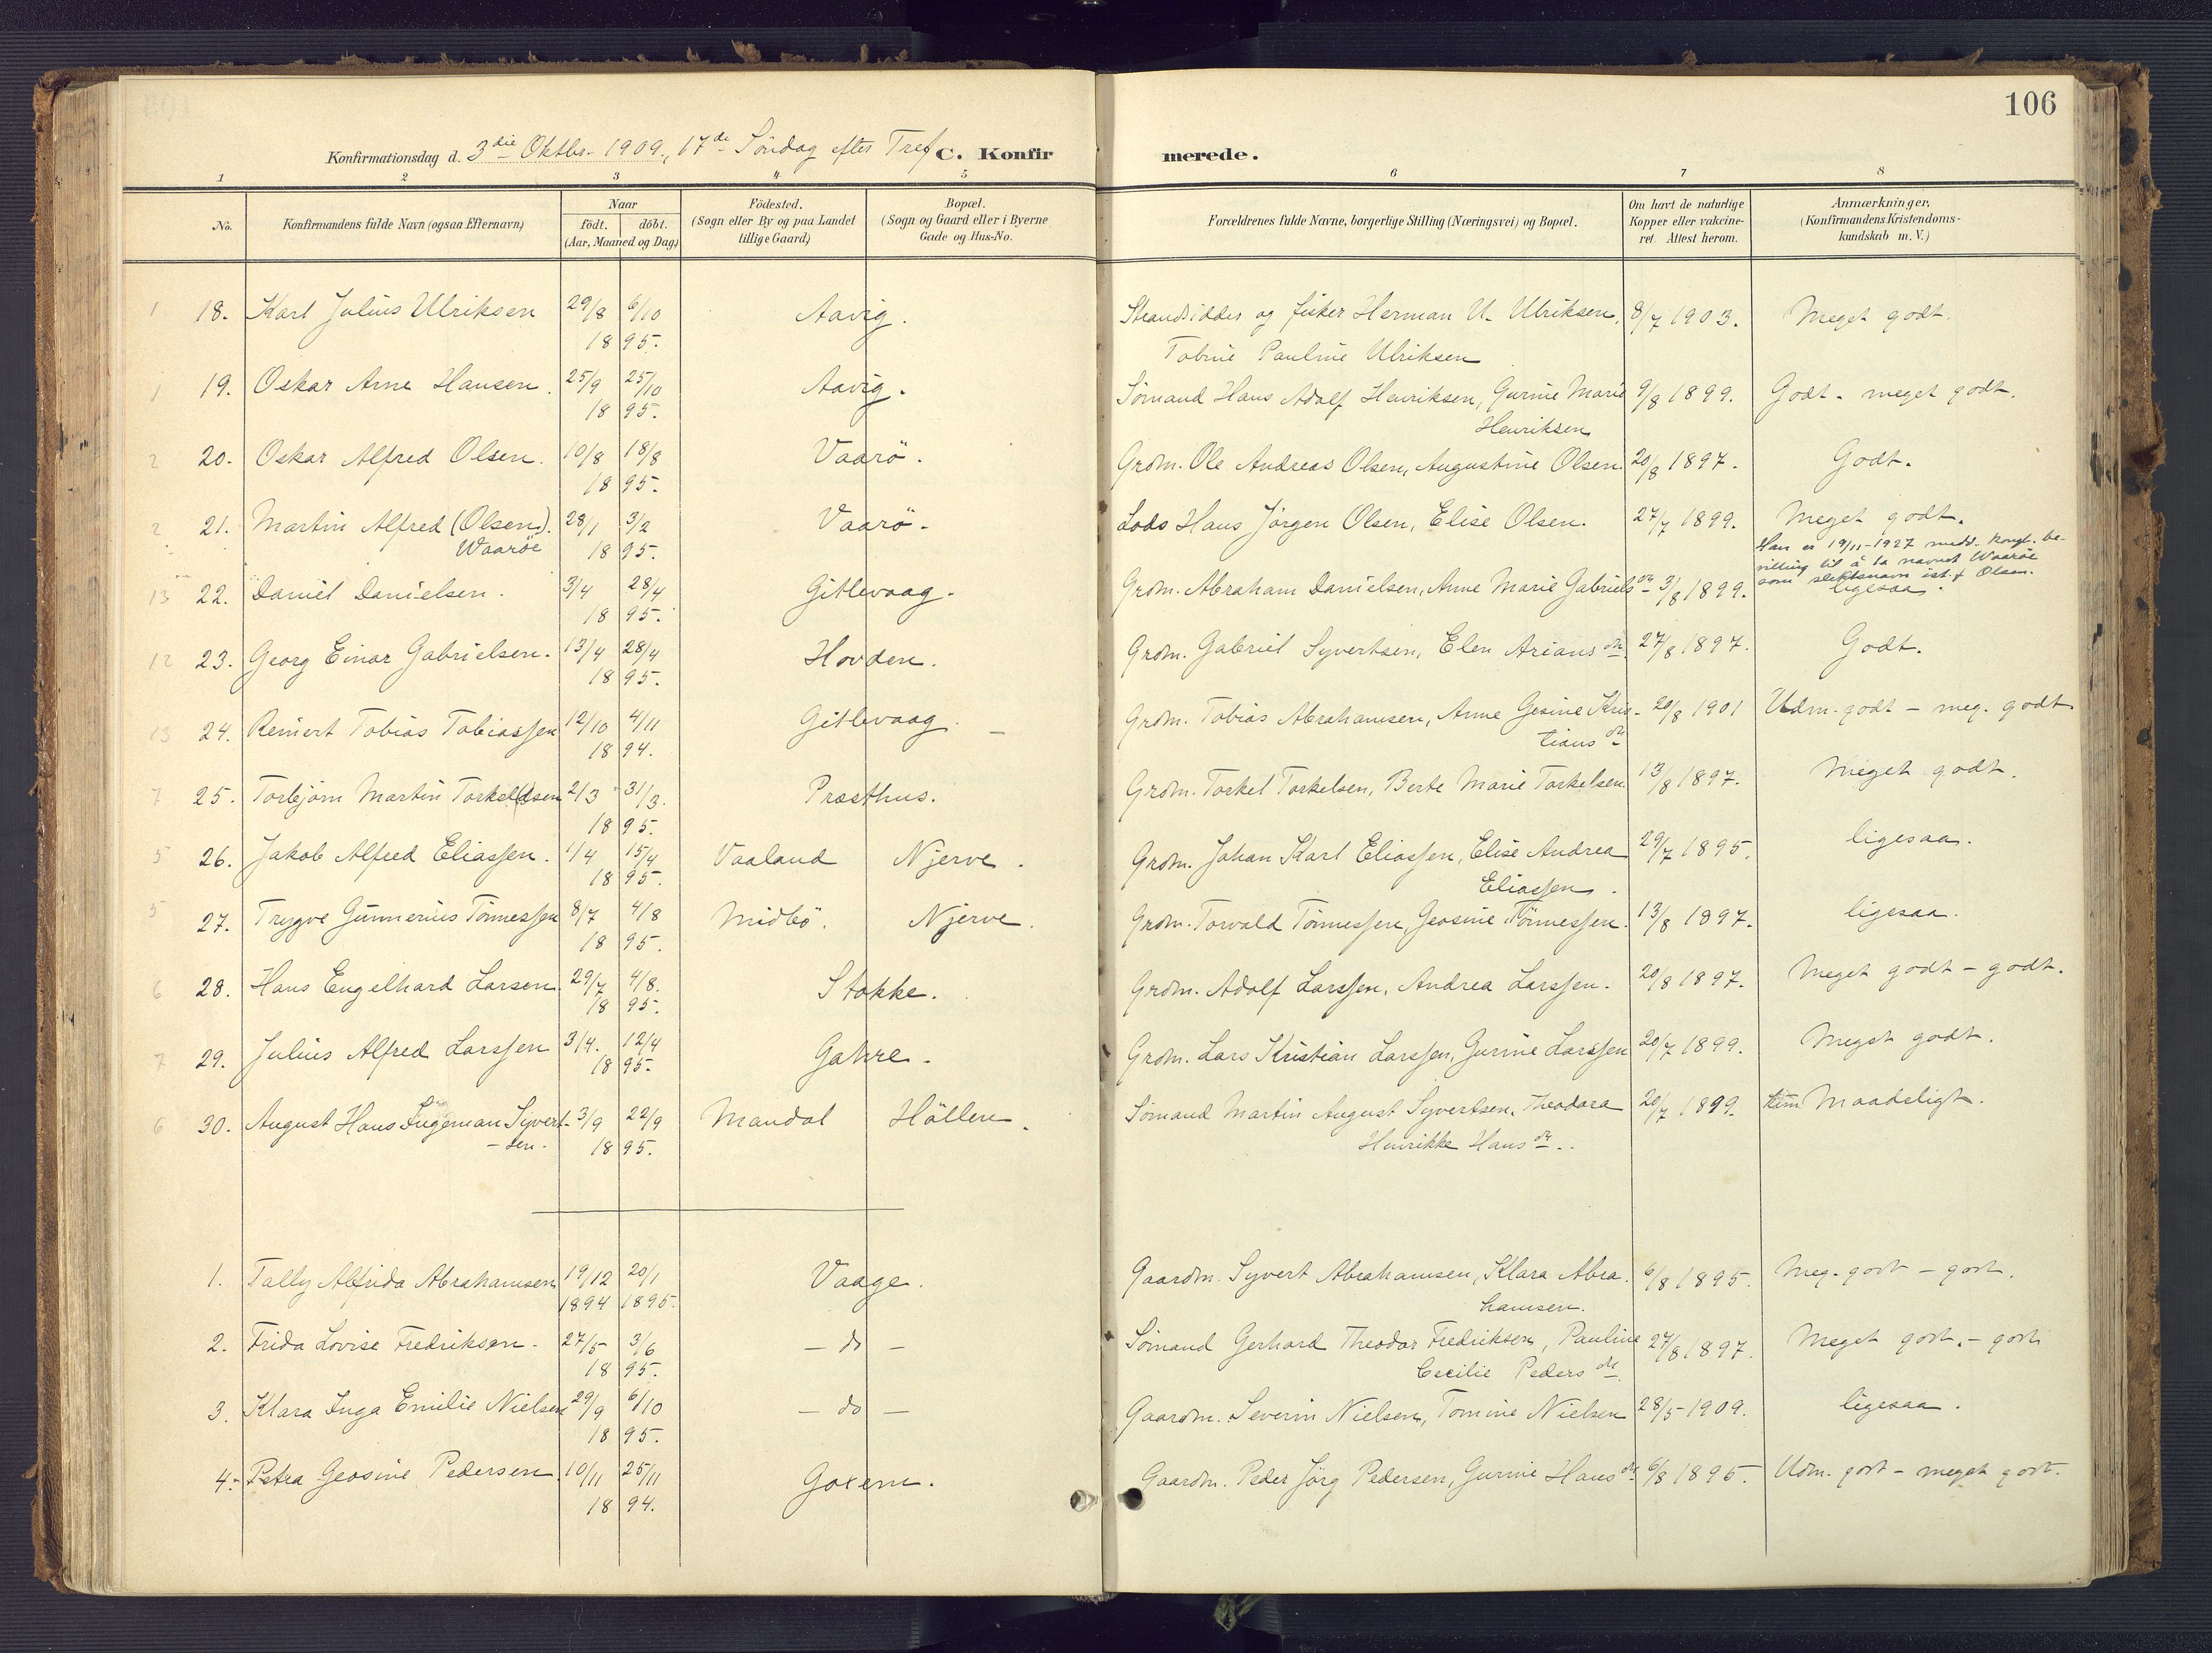 106
Konfirmationsdag d. 3die Oktbr. 1909, 17de Söndag efter Tref C. Konfirmerede.
1 2 3 4 5 6 7 8
No. Konfirmandens fulde Navn (ogsaa Efternavn) Naar födt. döbt. (Aar, Maaned og Dag) Födested. (Sogn eller By og paa Landet tillige Gaard) Bopæl. (Sogn og Gaard eller i Byerne Gade og Hus-No. Forældrenes fulde Navne, borgerlige Stilling (Næringsvei) og Bopæl. Om havt de naturlige Kopper eller vakcineret. Attest herom. Anmærkninger. (Konfirmandens Kristendomskundskab m. V.)
1 18. Karl Julius Ulriksen 29/8 6/10 Aavig. Strandsidder og fisker Herman U. Ulriksen, 8/7 1903. Meget godt.
18 95. Tobine Pauline Ulriksen
1 19. Oskar Arne Hansen. 25/9 25/10 Aavig. Sömand Hans Adolf Henriksen, Gurine Marie 9/8 1899. Godt - meget godt.
18 95. Henriksen
2 20. Oskar Alfred Olsen. 10/8 18/8 Vaarö. Grdm. Ole Andreas Olsen, Augustine Olsen. 20/8 1897. Godt.
18 95.
2 21. Martin Alfred (Olsen). 28/1 3/2 Vaarö. Lods Hans Jörgen Olsen, Elise Olsen. 27/7 1899. Meget godt.
Waaröe 18 95. Han er 19/11-1927 medd. kongl. be-
villing til å ta navnet Waaröe
som slektsnavn ist. f. Olsen.
13 22. Daniel Danielsen. 3/4 28/4 Gitlevaag. Grdm. Abraham Danielsen, Anne Marie Gabrielsdr 3/8 1899. ligesaa.
18 95.
12 23. Georg Einar Gabrielsen. 13/4 28/4 Hovden. Grdm. Gabriel Syvertsen, Elen Ariansdr. 27/8 1897. Godt.
18 95.
13 24. Reinert Tobias Tobiassen 12/10 4/11 Gitlevaag. Grdm. Tobias Abrahamsen, Anne Gesine Kris- 20/8 1901 Udm. godt - meg. godt
18 94. tiansdr
7 25. Torbjørn Martin Torkeldsen 2/3 31/3. Præsthus. Grdm. Torkel Torkelsen, Berte Marie Torkelsen. 13/8 1897. Meget godt.
18 95.
5 26. Jakob Alfred Eliassen. 1/4 15/4 Vaaland Njerve. Grdm. Johan Karl Eliassen, Elise Andrea 29/7 1895. ligesaa.
18 95. Eliassen.
5 27. Trygve Gunnerius Tönnessen 8/7 4/8 Midbö. Njerve. Grdm. Torvald Tönnessen, Geosine Tönnessen. 13/8 1897. ligesaa.
18 95.
6 28. Hans Engelhard Larsen. 29/7 4/8. Stokke. Grdm. Adolf Larssen, Andrea Larssen. 20/8 1897. Meget godt - godt.
18 95.
7 29. Julius Alfred Larssen 3/4. 12/4 Gahre. Grdm. Lars Kristian Larssen, Gurine Larssen 20/7 1899. Meget godt.
18 95.
6 30. August Hans Ingeman Syvert- 3/9 22/9 Mandal Höllen. Sömand Martin August Syvertsen, Theodora 20/7 1899. Maadeligt.
-sen. 18 95. Henrikke Hansdr.
1. Tally Alfrida Abrahamsen 19/12 20/1 Vaage. Gaardm. Syvert Abrahamsen, Klara Abra- 6/8 1895. Meg. godt - godt.
1894 1895. hamsen.
2. Frida Lovise Fredriksen. 27/5 3/6 - do - Sömand Gerhard Theodor Fredriksen, Pauline 27/8 1897. Meget godt. - godt
18 95. Cecilie Pedersdr.
3. Klara Inga Emilie Nielsen 29/9 6/10 - do - Gaardm. Severin Nielsen, Tomine Nielsen 28/5 - 1909. ligesaa.
18 95.
4. Petra Geosine Pedersen 10/11 25/11 Goxem. Gaardm. Peder Jörg Pedersen, Gurine Hansdr 6/8 1895. Udm. godt - meget godt.
18 94.